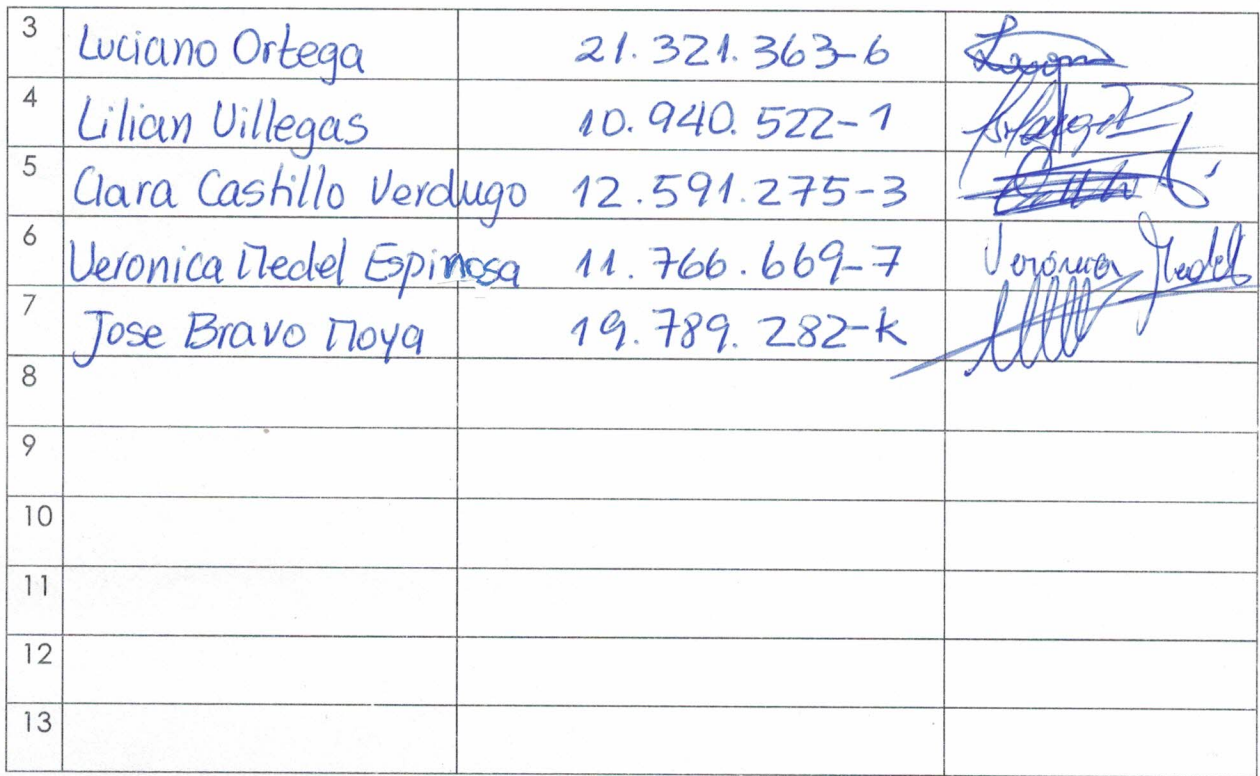 3 Luciano Ortega 21.321.363-6
4 Lilian Villegas 10.940.522-1
5 Clara Castillo Verdugo 12.591.275-3
6 Veronica Medel Espinosa 11.766.669-7 Verónica Medel
7 Jose Bravo Moya 19.789.282-K
8
9
10
11
12
13